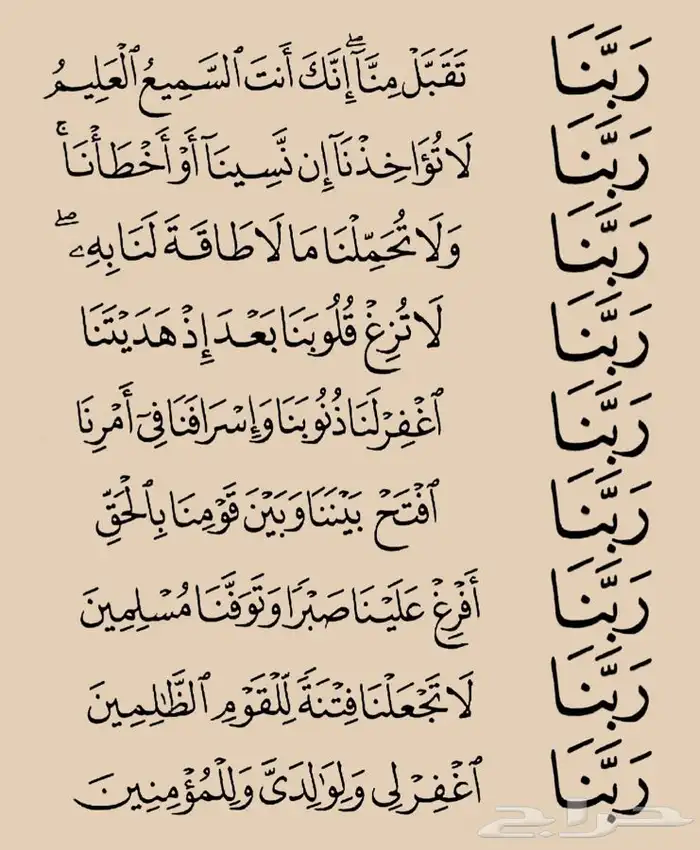 رَبَّنَا تَقَبَّلْ مِنَّآ ۖ إِنَّكَ أَنتَ ٱلسَّمِيعُ ٱلْعَلِيمُ
رَبَّنَا لَا تُؤَاخِذْنَآ إِن نَّسِينَآ أَوْ أَخْطَأْنَا ۚ
رَبَّنَا وَلَا تُحَمِّلْنَا مَا لَا طَاقَةَ لَنَا بِهِۦ ۖ
رَبَّنَا لَا تُزِغْ قُلُوبَنَا بَعْدَ إِذْ هَدَيْتَنَا
رَبَّنَا ٱغْفِرْ لَنَا ذُنُوبَنَا وَإِسْرَافَنَا فِىٓ أَمْرِنَا
رَبَّنَا ٱفْتَحْ بَيْنَنَا وَبَيْنَ قَوْمِنَا بِٱلْحَقِّ
رَبَّنَا أَفْرِغْ عَلَيْنَا صَبْرًا وَتَوَفَّنَا مُسْلِمِينَ
رَبَّنَا لَا تَجْعَلْنَا فِتْنَةً لِّلْقَوْمِ ٱلظَّٰلِمِينَ
رَبَّنَا ٱغْفِرْ لِى وَلِوَٰلِدَىَّ وَلِلْمُؤْمِنِينَ
حراج